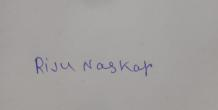 Riju Naskar